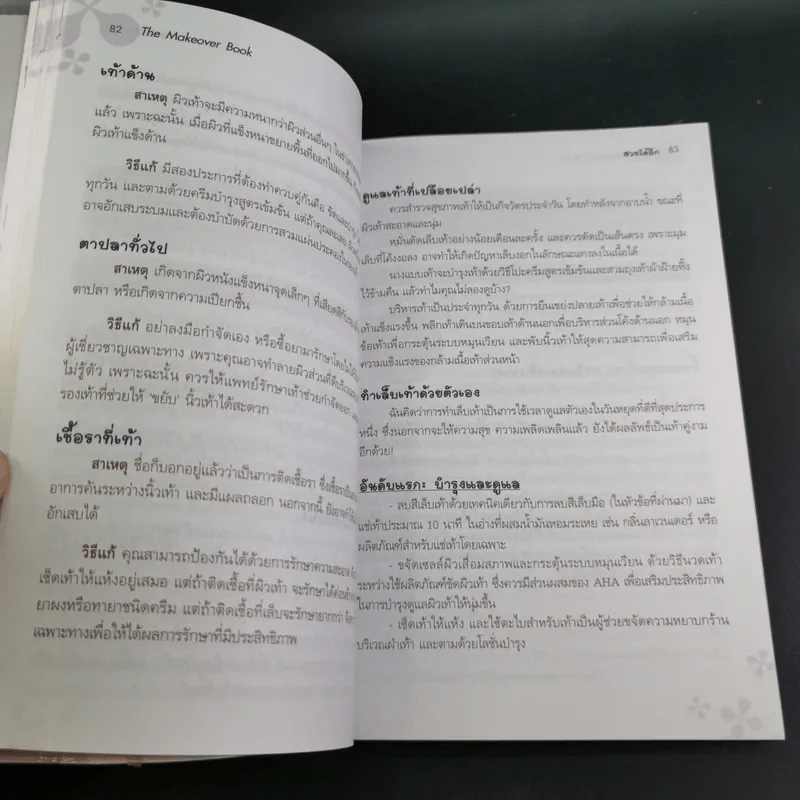 82 The Makeover Book
เท้าด้าน
สาเหตุ ผิวเท้าจะมีความหนากว่าผิวส่วนอื่นๆ
แล้ว เพราะฉะนั้น เมื่อผิวที่แข็งหนาขยายพื้นที่ออกไปมากขึ้น
ผิวเท้าแข็งด้าน
วิธีแก้ มีสองประการที่ต้องทำควบคู่กันคือ
ทุกวัน และตามด้วยครีมบำรุงสูตรเข้มข้น แต่ถ้าคุณละเลย
อาจอักเสบระบมและต้องบำบัดด้วยการสวมแผ่นประคอง
ตาปลาทั่วไป
สาเหตุ เกิดจากผิวหนังแข็งหนาจุดเล็กๆ ที่เสียดสีกับ
ตาปลา หรือเกิดจากความเปียกชื้น
วิธีแก้ อย่าลงมือกำจัดเอง หรือซื้อยามารักษาโดยไม่
ผู้เชี่ยวชาญเฉพาะทาง เพราะคุณอาจทำลายผิวส่วนที่ดี
ไม่รู้ตัว เพราะฉะนั้น ควรให้แพทย์รักษาเท้าช่วยกำจัดออก
รองเท้าที่ช่วยให้ 'ขยับ' นิ้วเท้าได้สะดวก
เชื้อราที่เท้า
สาเหตุ ชื่อก็บอกอยู่แล้วว่าเป็นการติดเชื้อรา ซึ่งเชื้อรา
อาการคันระหว่างนิ้วเท้า และมีแผลถลอก นอกจากนี้
อักเสบได้
วิธีแก้ คุณสามารถป้องกันได้ด้วยการรักษาความสะอาด
เช็ดเท้าให้แห้งอยู่เสมอ แต่ถ้าติดเชื้อที่ผิวเท้า จะรักษาได้
ยาผงหรือทายาชนิดครีม แต่ถ้าติดเชื้อที่เล็บจะรักษายากกว่า
เฉพาะทางเพื่อให้ได้ผลการรักษาที่มีประสิทธิภาพ
สวยได้อีก 83
ดูแลเท้าที่เปลือยเปล่า
ควรสำรวจสุขภาพเท้าให้เป็นกิจวัตรประจำวัน โดยทำหลังจากอาบน้ำ ขณะที่
ผิวเท้าสะอาดและนุ่ม
หมั่นตัดเล็บเท้าอย่างน้อยเดือนละครั้ง และควรตัดเป็นเส้นตรง เพราะมุม
เล็บที่โค้งงอลง อาจทำให้เกิดปัญหาเล็บงอกในลักษณะแทงลงในเนื้อได้
นางแบบเท้าจะบำรุงเท้าด้วยวิธีโปะครีมสูตรเข้มข้นและสวมถุงเท้าผ้าฝ้ายทิ้ง
ไว้ข้ามคืน แล้วทำไมคุณไม่ลองดูบ้าง?
บริหารเท้าเป็นประจำทุกวัน ด้วยการยืนเขย่งปลายเท้าเพื่อช่วยให้กล้ามเนื้อ
เท้าแข็งแรงขึ้น พลิกเท้าเดินบนขอบเท้าด้านนอกเพื่อบริหารส่วนโค้งด้านนอก หมุน
ข้อเท้าเพื่อกระตุ้นระบบหมุนเวียน และพับนิ้วเท้าให้สุดความสามารถเพื่อเสริม
ความแข็งแรงของกล้ามเนื้อเท้าส่วนหน้า
ทำเล็บเท้าด้วยตัวเอง
ฉันคิดว่าการทำเล็บเท้าเป็นการใช้เวลาดูแลตัวเองในวันหยุดที่ดีที่สุดประการ
หนึ่ง ซึ่งนอกจากจะให้ความสุข ความเพลิดเพลินแล้ว ยังได้ผลลัพธ์เป็นเท้าคู่งาม
อีกด้วย!
อันดับแรก: บำรุงและดูแล
- ลบสีเล็บเท้าด้วยเทคนิคเดียวกับการลบสีเล็บมือ (ในหัวข้อที่ผ่านมา) และ
แช่เท้าประมาณ 10 นาที ในอ่างที่ผสมน้ำมันหอมระเหย เช่น กลิ่นลาเวนเดอร์ หรือ
ผลิตภัณฑ์สำหรับแช่เท้าโดยเฉพาะ
- ขจัดเซลล์ผิวเสื่อมสภาพและกระตุ้นระบบหมุนเวียน ด้วยวิธีนวดเท้า
ระหว่างใช้ผลิตภัณฑ์ขัดผิวเท้า ซึ่งควรมีส่วนผสมของ AHA เพื่อเสริมประสิทธิภาพ
ในการบำรุงดูแลผิวเท้าให้นุ่มขึ้น
- เช็ดเท้าให้แห้ง และใช้ตะไบสำหรับเท้าเป็นผู้ช่วยขจัดความหยาบกร้าน
บริเวณฝ่าเท้า และตามด้วยโลชั่นบำรุง